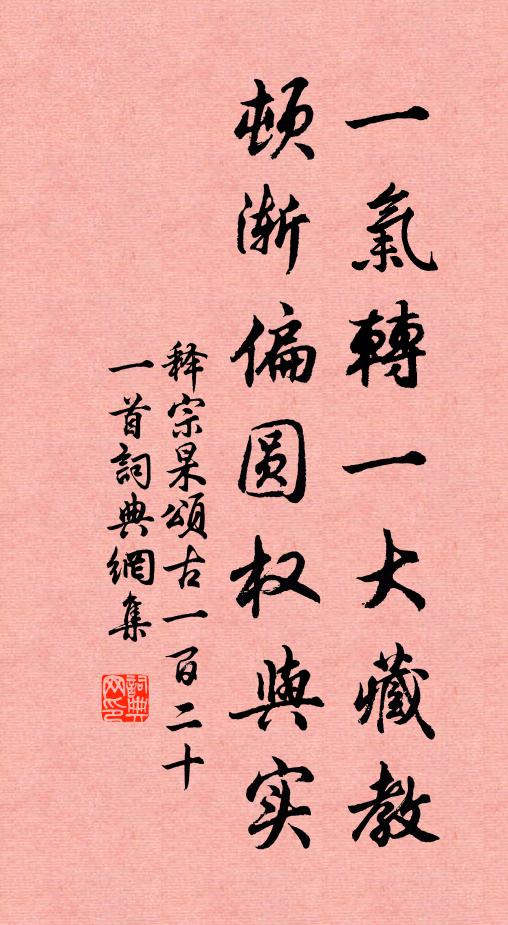 一氣轉一大藏教
頓漸偏圓权與实
释宗杲頌古一百二十
一首詞典網集
詞典网印